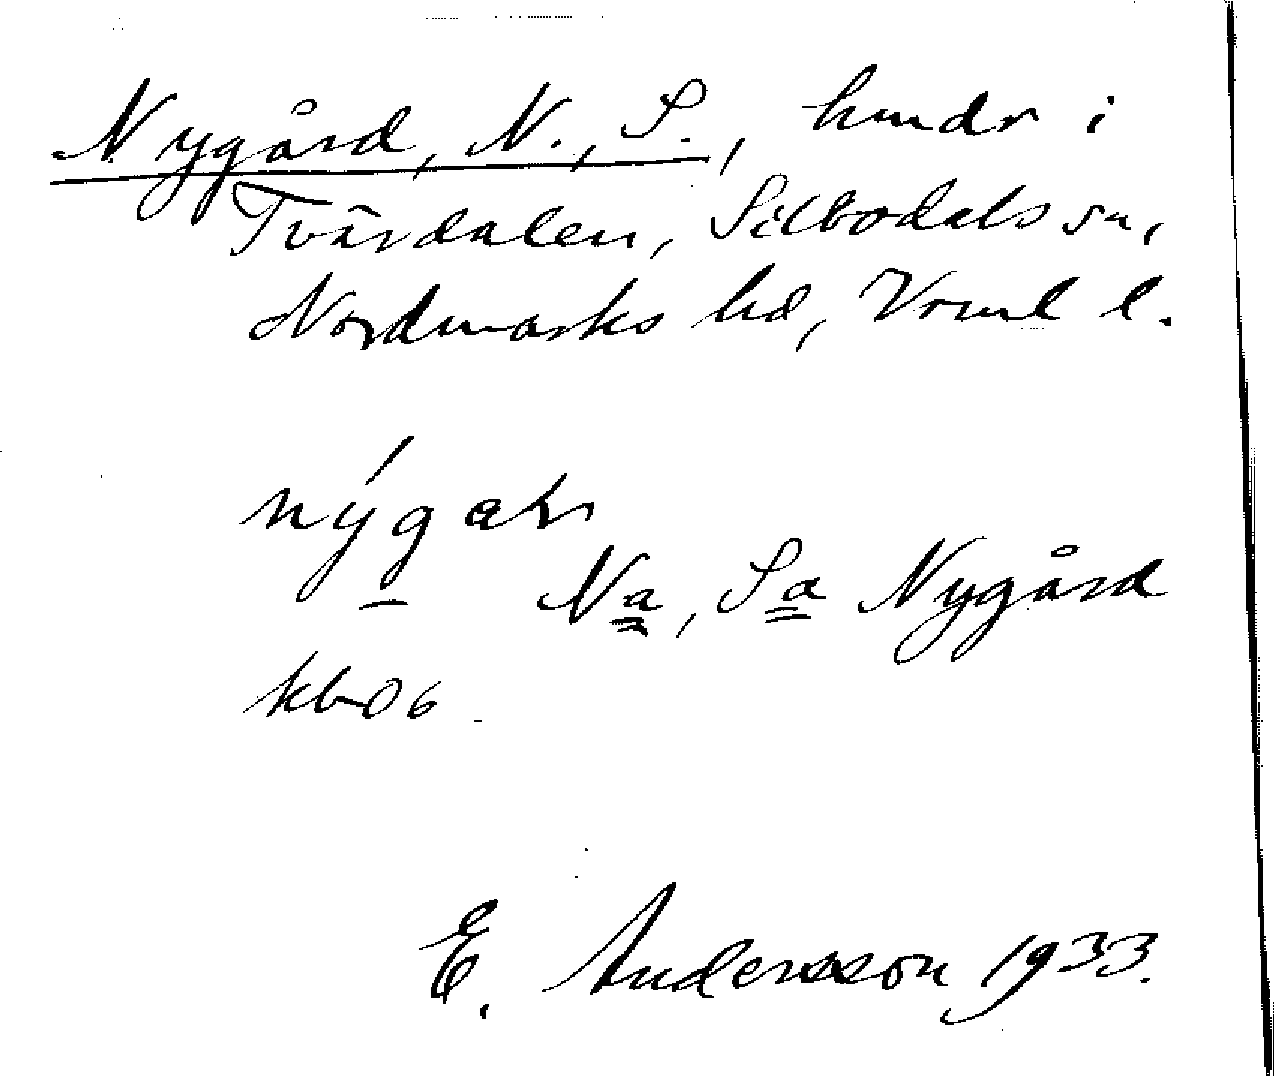 Nygård, N., S., hmdr i
Tvärdalen, Silbodals sn,
Nordmarks hd, Vrml l.
nýgaɫɳ
Na, Sa Nygård
kb06
E. Andersson 1933.